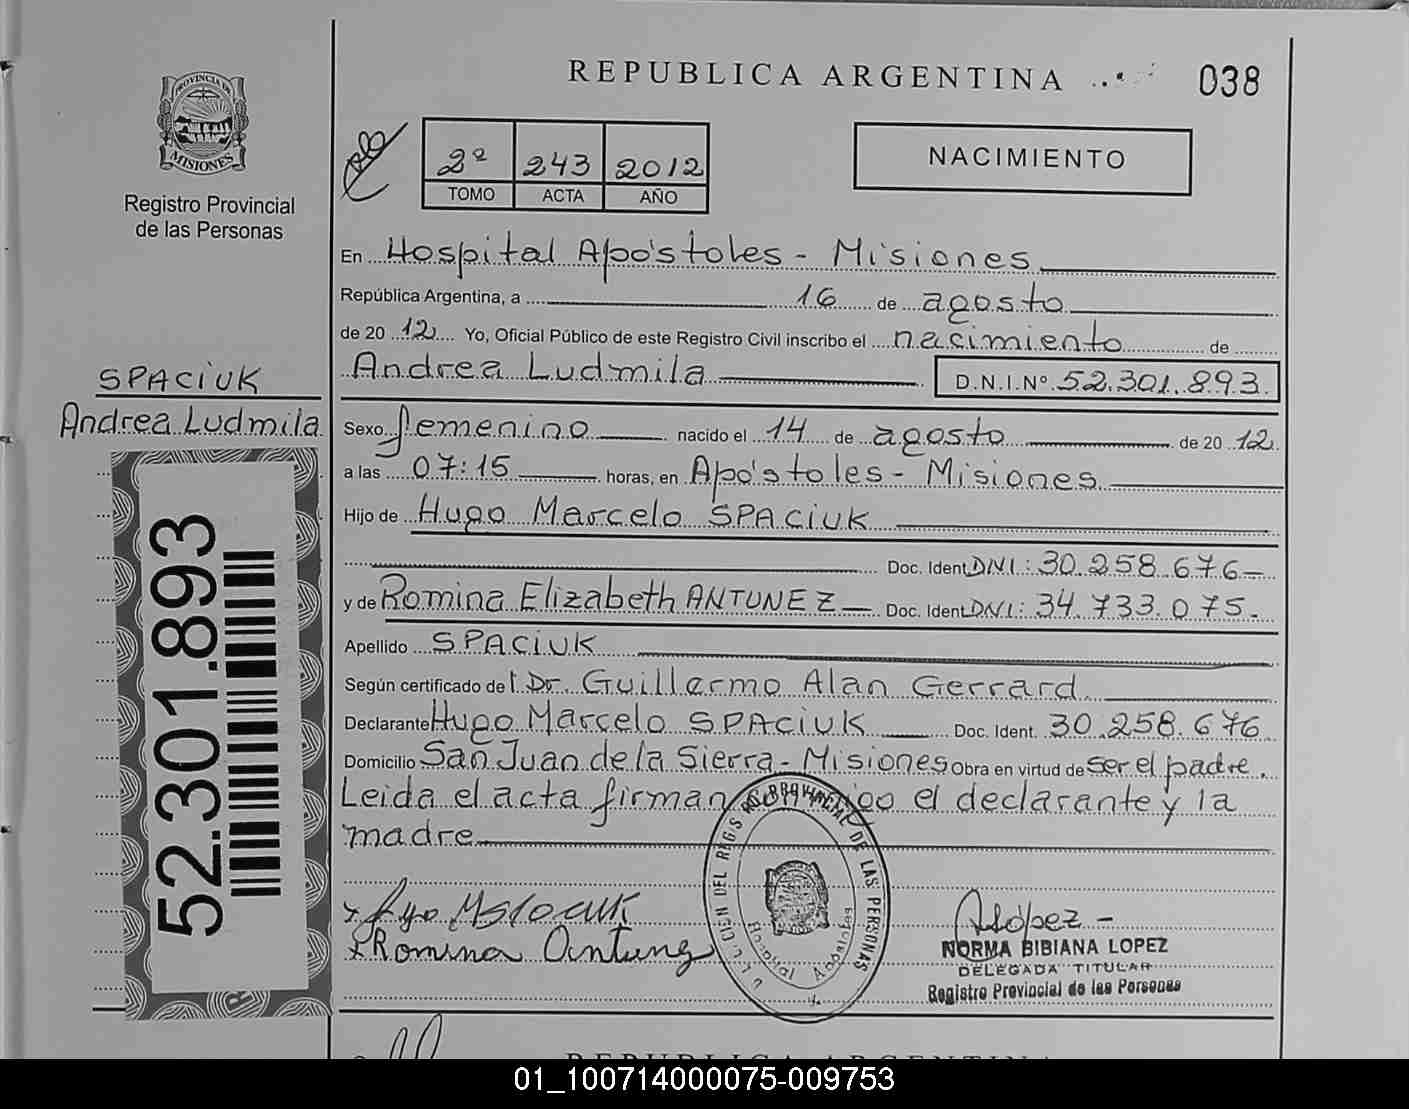 REPUBLICA ARGENTINA
038
PROVINCIA DE
MISIONES
Registro Provincial
de las Personas
2º 243 2012
TOMO ACTA AÑO
NACIMIENTO
En Hospital Apóstoles - Misiones
República Argentina, a 16 de agosto
de 20 12 Yo, Oficial Público de este Registro Civil inscribo el nacimiento de
Andrea Ludmila D.N.I.Nº 52.301.893.
SPACIUK
Andrea Ludmila
Sexo femenino nacido el 14 de agosto de 20 12
a las 07:15 horas, en Apóstoles - Misiones
Hijo de Hugo Marcelo SPACIUK
Doc. Ident. DNI: 30.258.676-
y de Romina Elizabeth ANTUNEZ Doc. Ident. DNI: 34.733.075.-
Apellido SPACIUK
Según certificado del Dr. Guillermo Alan Gerrard
Declarante Hugo Marcelo SPACIUK Doc. Ident. 30.258.676
Domicilio San Juan de la Sierra - Misiones Obra en virtud de ser el padre.
Leida el acta firman el declarante y la
madre
52.301.893
DEL REG PROVINCIAL DE LAS PERSONAS
Hospital Apóstoles
Romina Antunez
ALópez -
NORMA BIBIANA LOPEZ
DELEGADA TITULAR
Registro Provincial de las Personas
REPUBLICA ARGENTINA
01_100714000075-009753